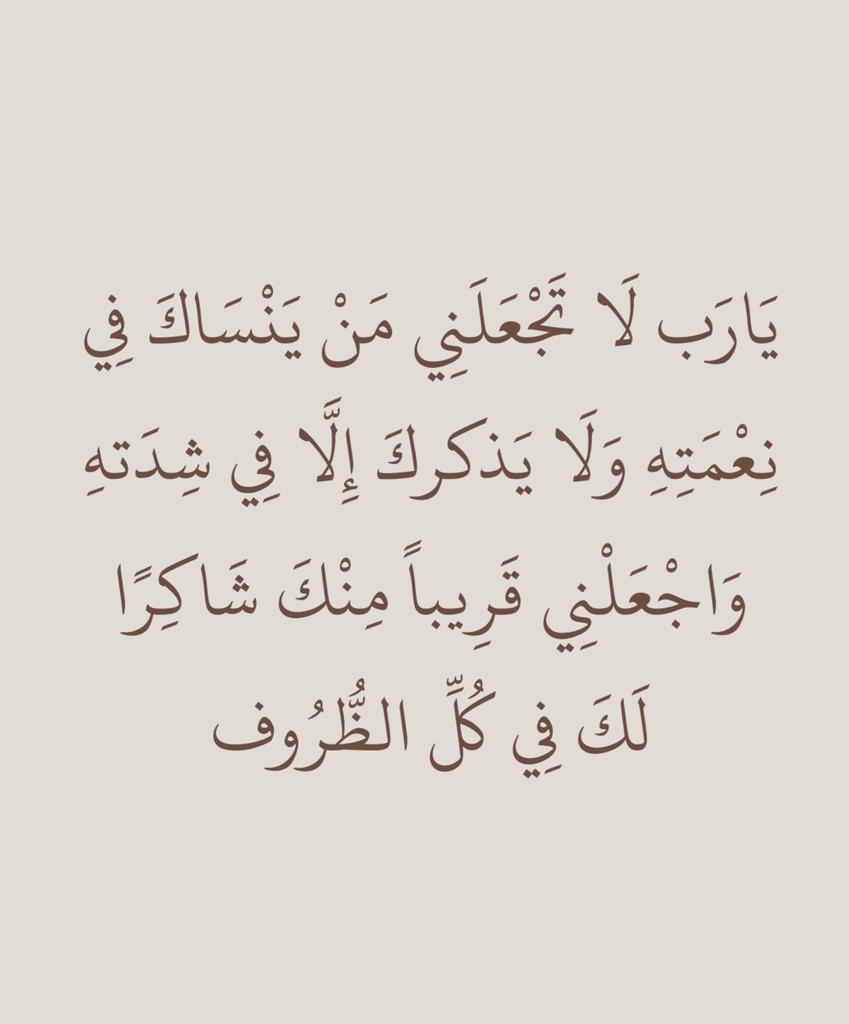 يَارَب لَا تَجْعَلَنِي مَنْ يَنْسَاكَ فِي
نِعْمَتِهِ وَلَا يَذكركَ إِلَّا فِي شِدَتهِ
وَاجْعَلْنِي قَرِيباً مِنْكَ شَاكِرًا
لَكَ فِي كُلِّ الظُّرُوف